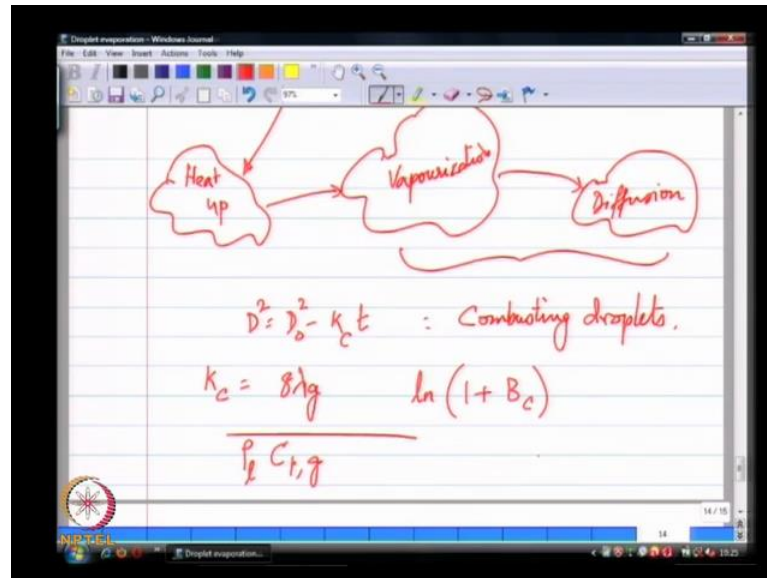 Droplet evaporation - Windows Journal
File Edit View Insert Actions Tools Help
B I
97%
Heat up
Vapourization
Diffusion
D² = D₀² - K_c t : Combusting droplets.
K_c = 8λg ln (1 + B_c)
ρ_l C_p,g
14 / 15
14
NPTEL
Droplet evaporation...
19:25